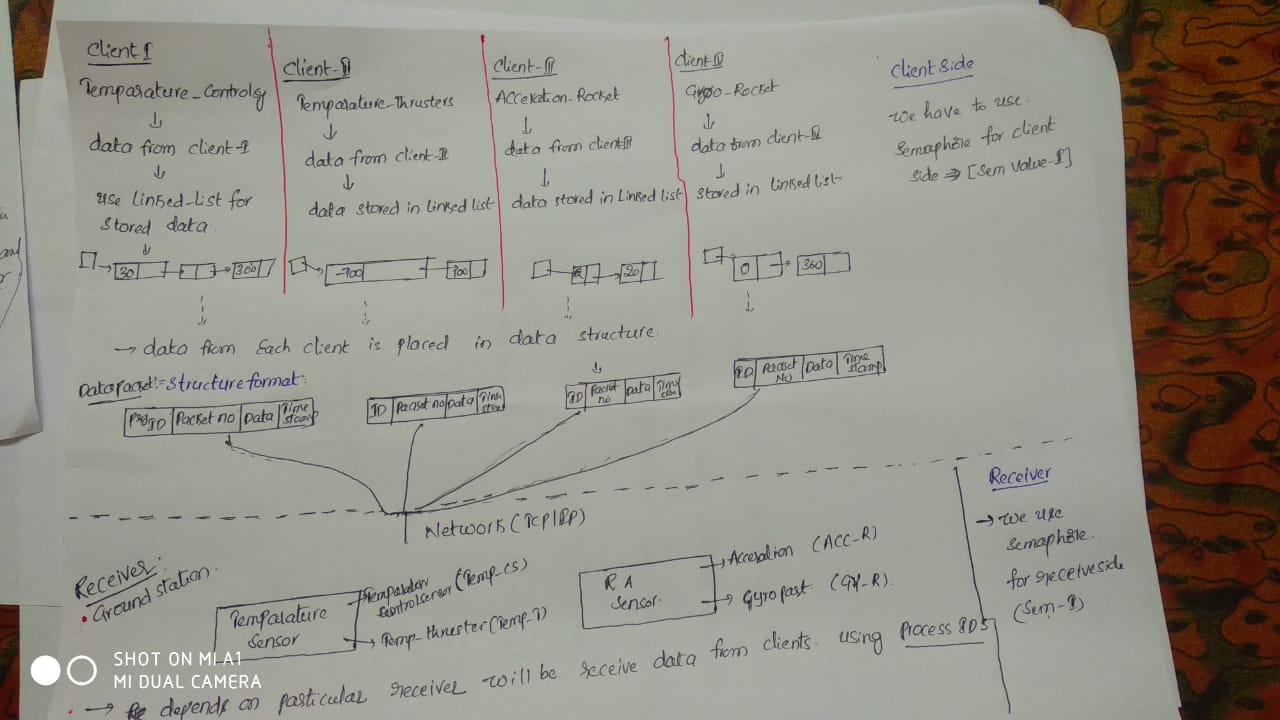 Client I
Temparature_Controlsy
↓
data from client-I
↓
use linked-list for
stored data.
↓
30 → → 300
Client-II
Temparature-Thrusters
↓
data from client-II
↓
data stored in linked list
-700 100
Client-III
Acceration-Rocket
↓
data from client III
↓
data stored in Linked list
20
Client IV
Gyro-Rocket
↓
data from client-IV
↓
stored in linked list
0 → 360
Client Side
we have to use.
Semaphore for client
side ⇒ [Sem value-1]
→ data from Each client is placed in data structure.
Data packet:- Structure format:
ID Packet no Data Time stamp
ID Packet no Data Time
ID Packet no Data Time
ID Packet No Data Time stamp
Network (TCP/IP)
Receiver:
• Ground station.
Temparature
Sensor
(Temp-CS)
→ Temp-thruster (Temp-T)
R.A
Sensor.
→ Acceration (ACC-R)
→ Gyro past. (GY-R).
Receiver
→ we use
Semaphore.
for receive side
(Sem-1)
→ depends on particular receiver will be receive data from clients. using Process IDS
SHOT ON MI A1
MI DUAL CAMERA